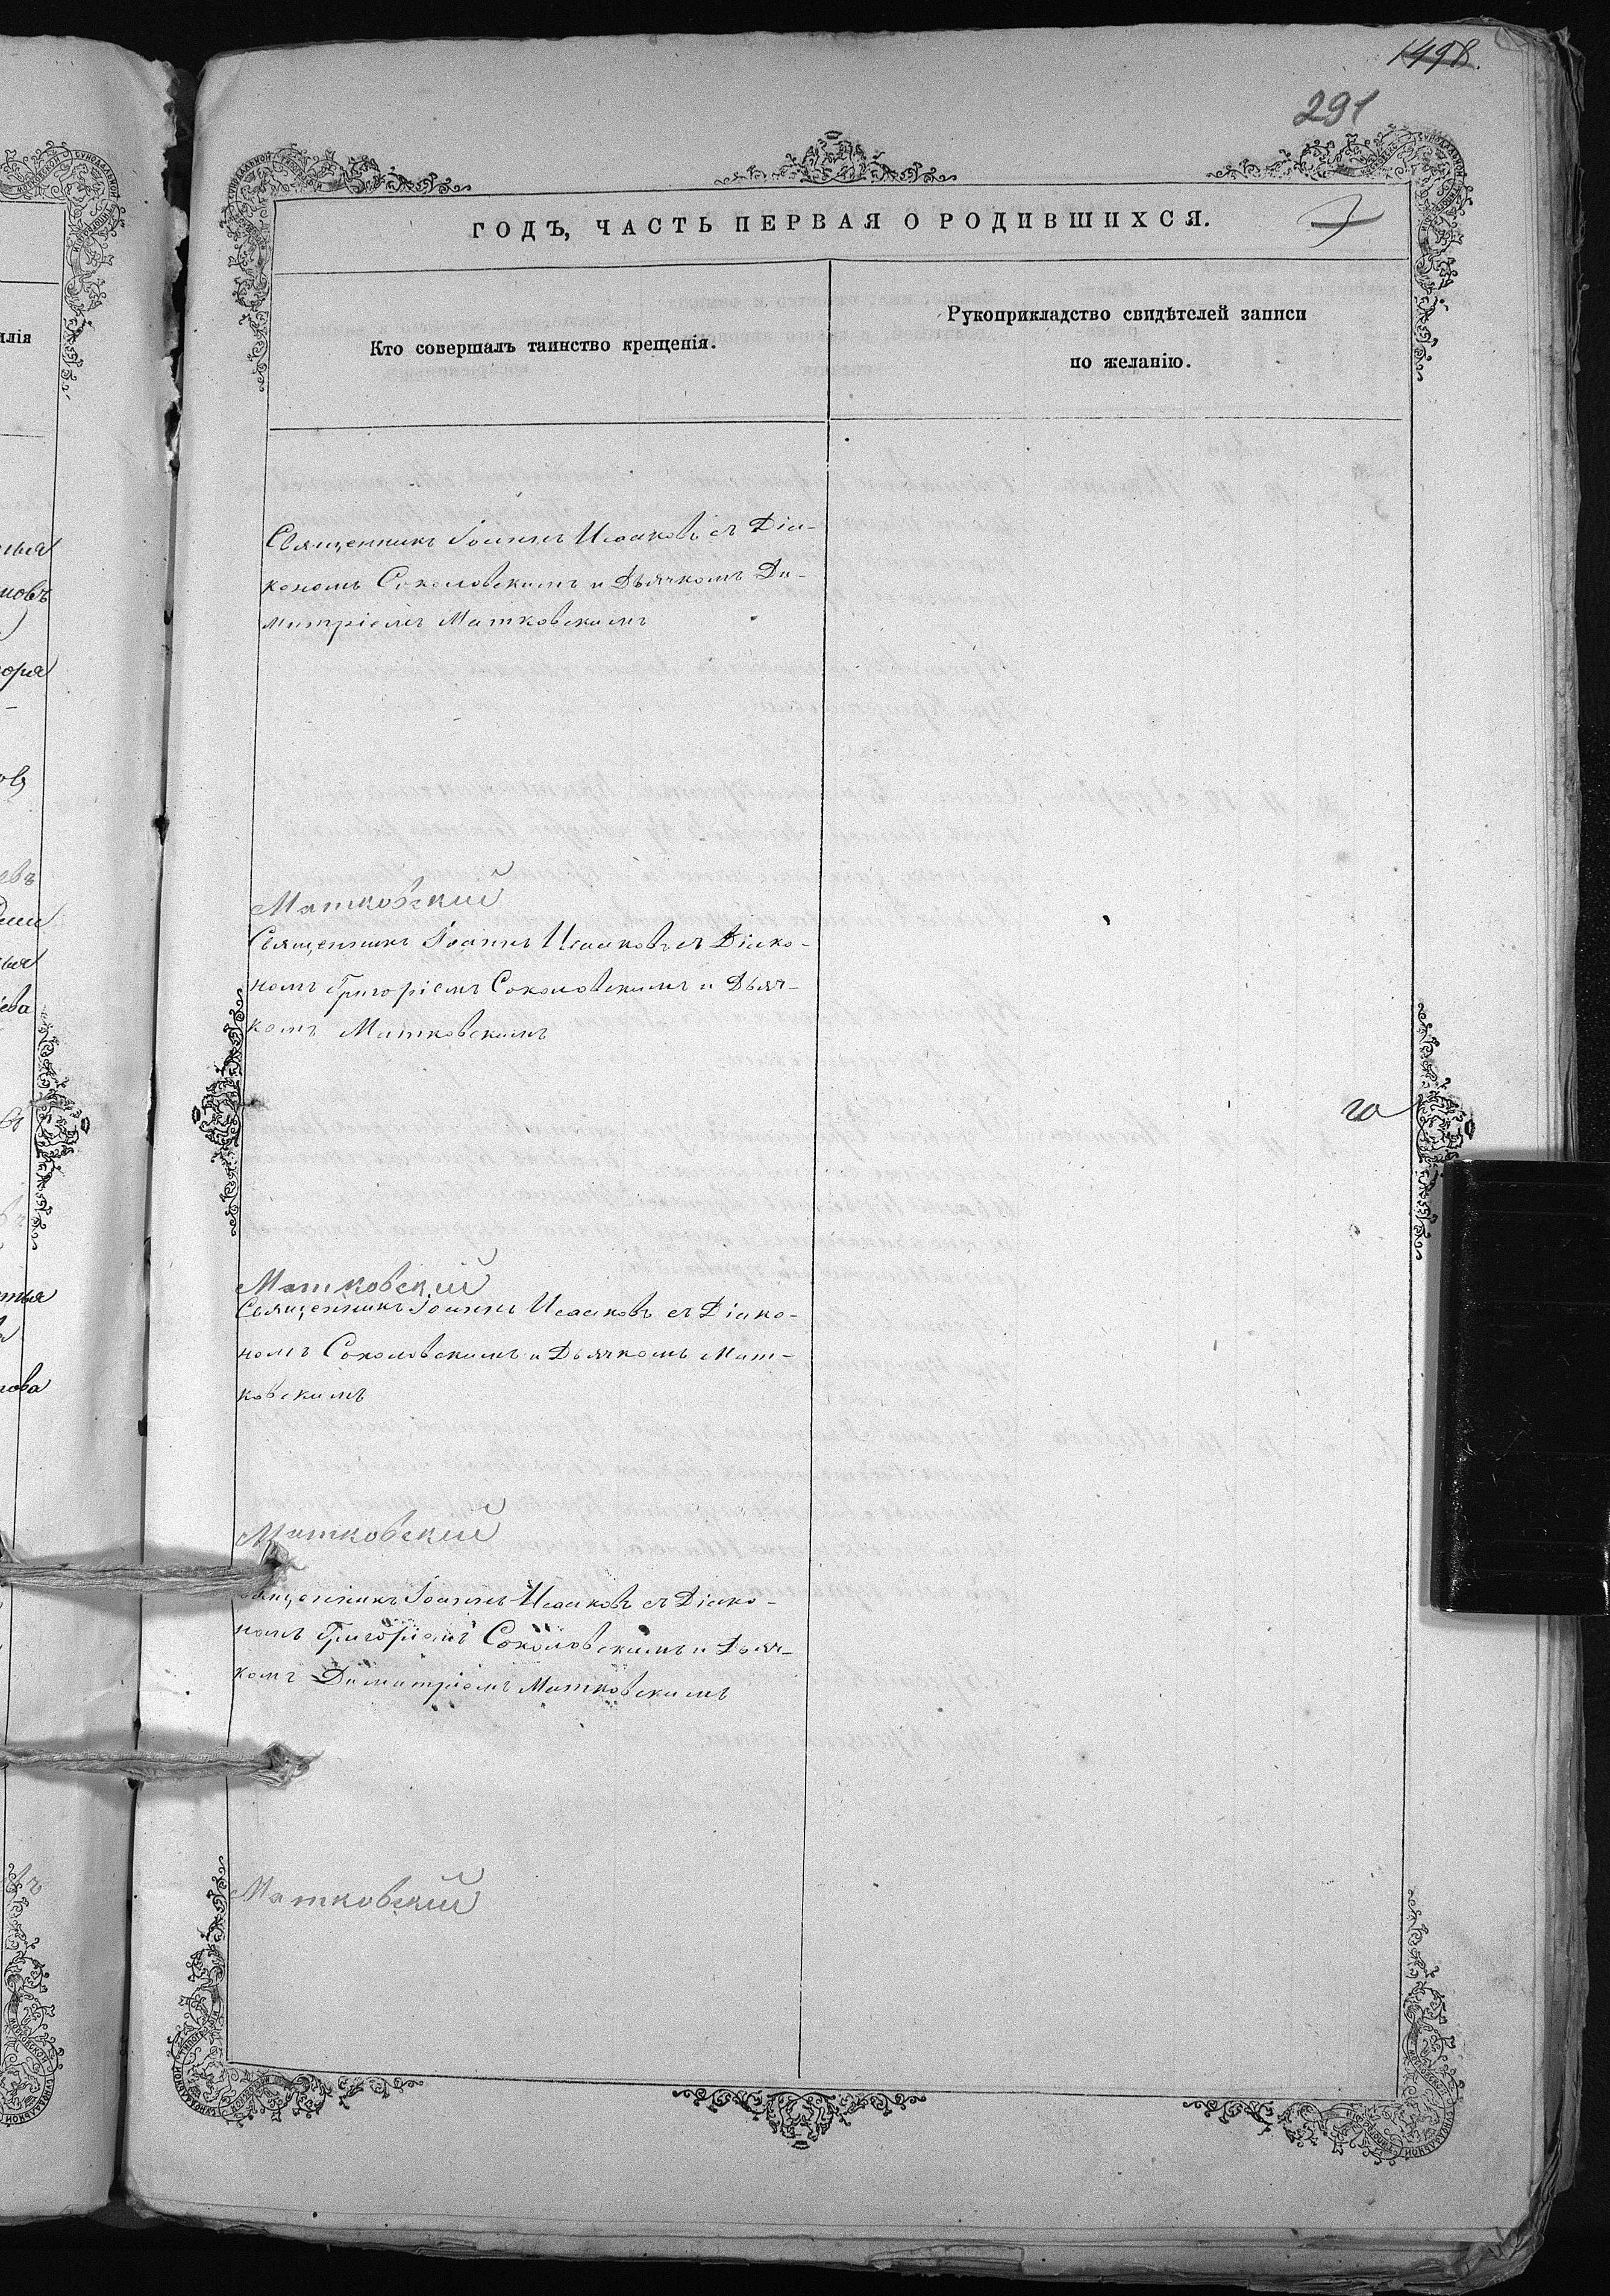 1498.
291
ГОДЪ, ЧАСТЬ ПЕРВАЯ О РОДИВШИХСЯ.
7
Кто совершалъ таинство крещенія.
Рукоприкладство свидѣтелей записи
по желанію.
Священникъ Іоаннъ Исааковъ съ Діа-
кономъ Соколовскимъ и Дьячкомъ Ди-
митріемъ Матковскимъ
Матковскій
Священникъ Іоаннъ Исааковъ съ Діако-
номъ Григоріемъ Соколовскимъ и Дьяч-
комъ Матковскимъ
го
Матковскій
Священникъ Іоаннъ Исааковъ съ Діако-
номъ Соколовскимъ и Дьячкомъ Мат-
ковскимъ
Матковскій
Священникъ Іоаннъ Исааковъ съ Діако-
номъ Григоріемъ Соколовскимъ и Дьяч-
комъ Димитріемъ Матковскимъ
Матковскій